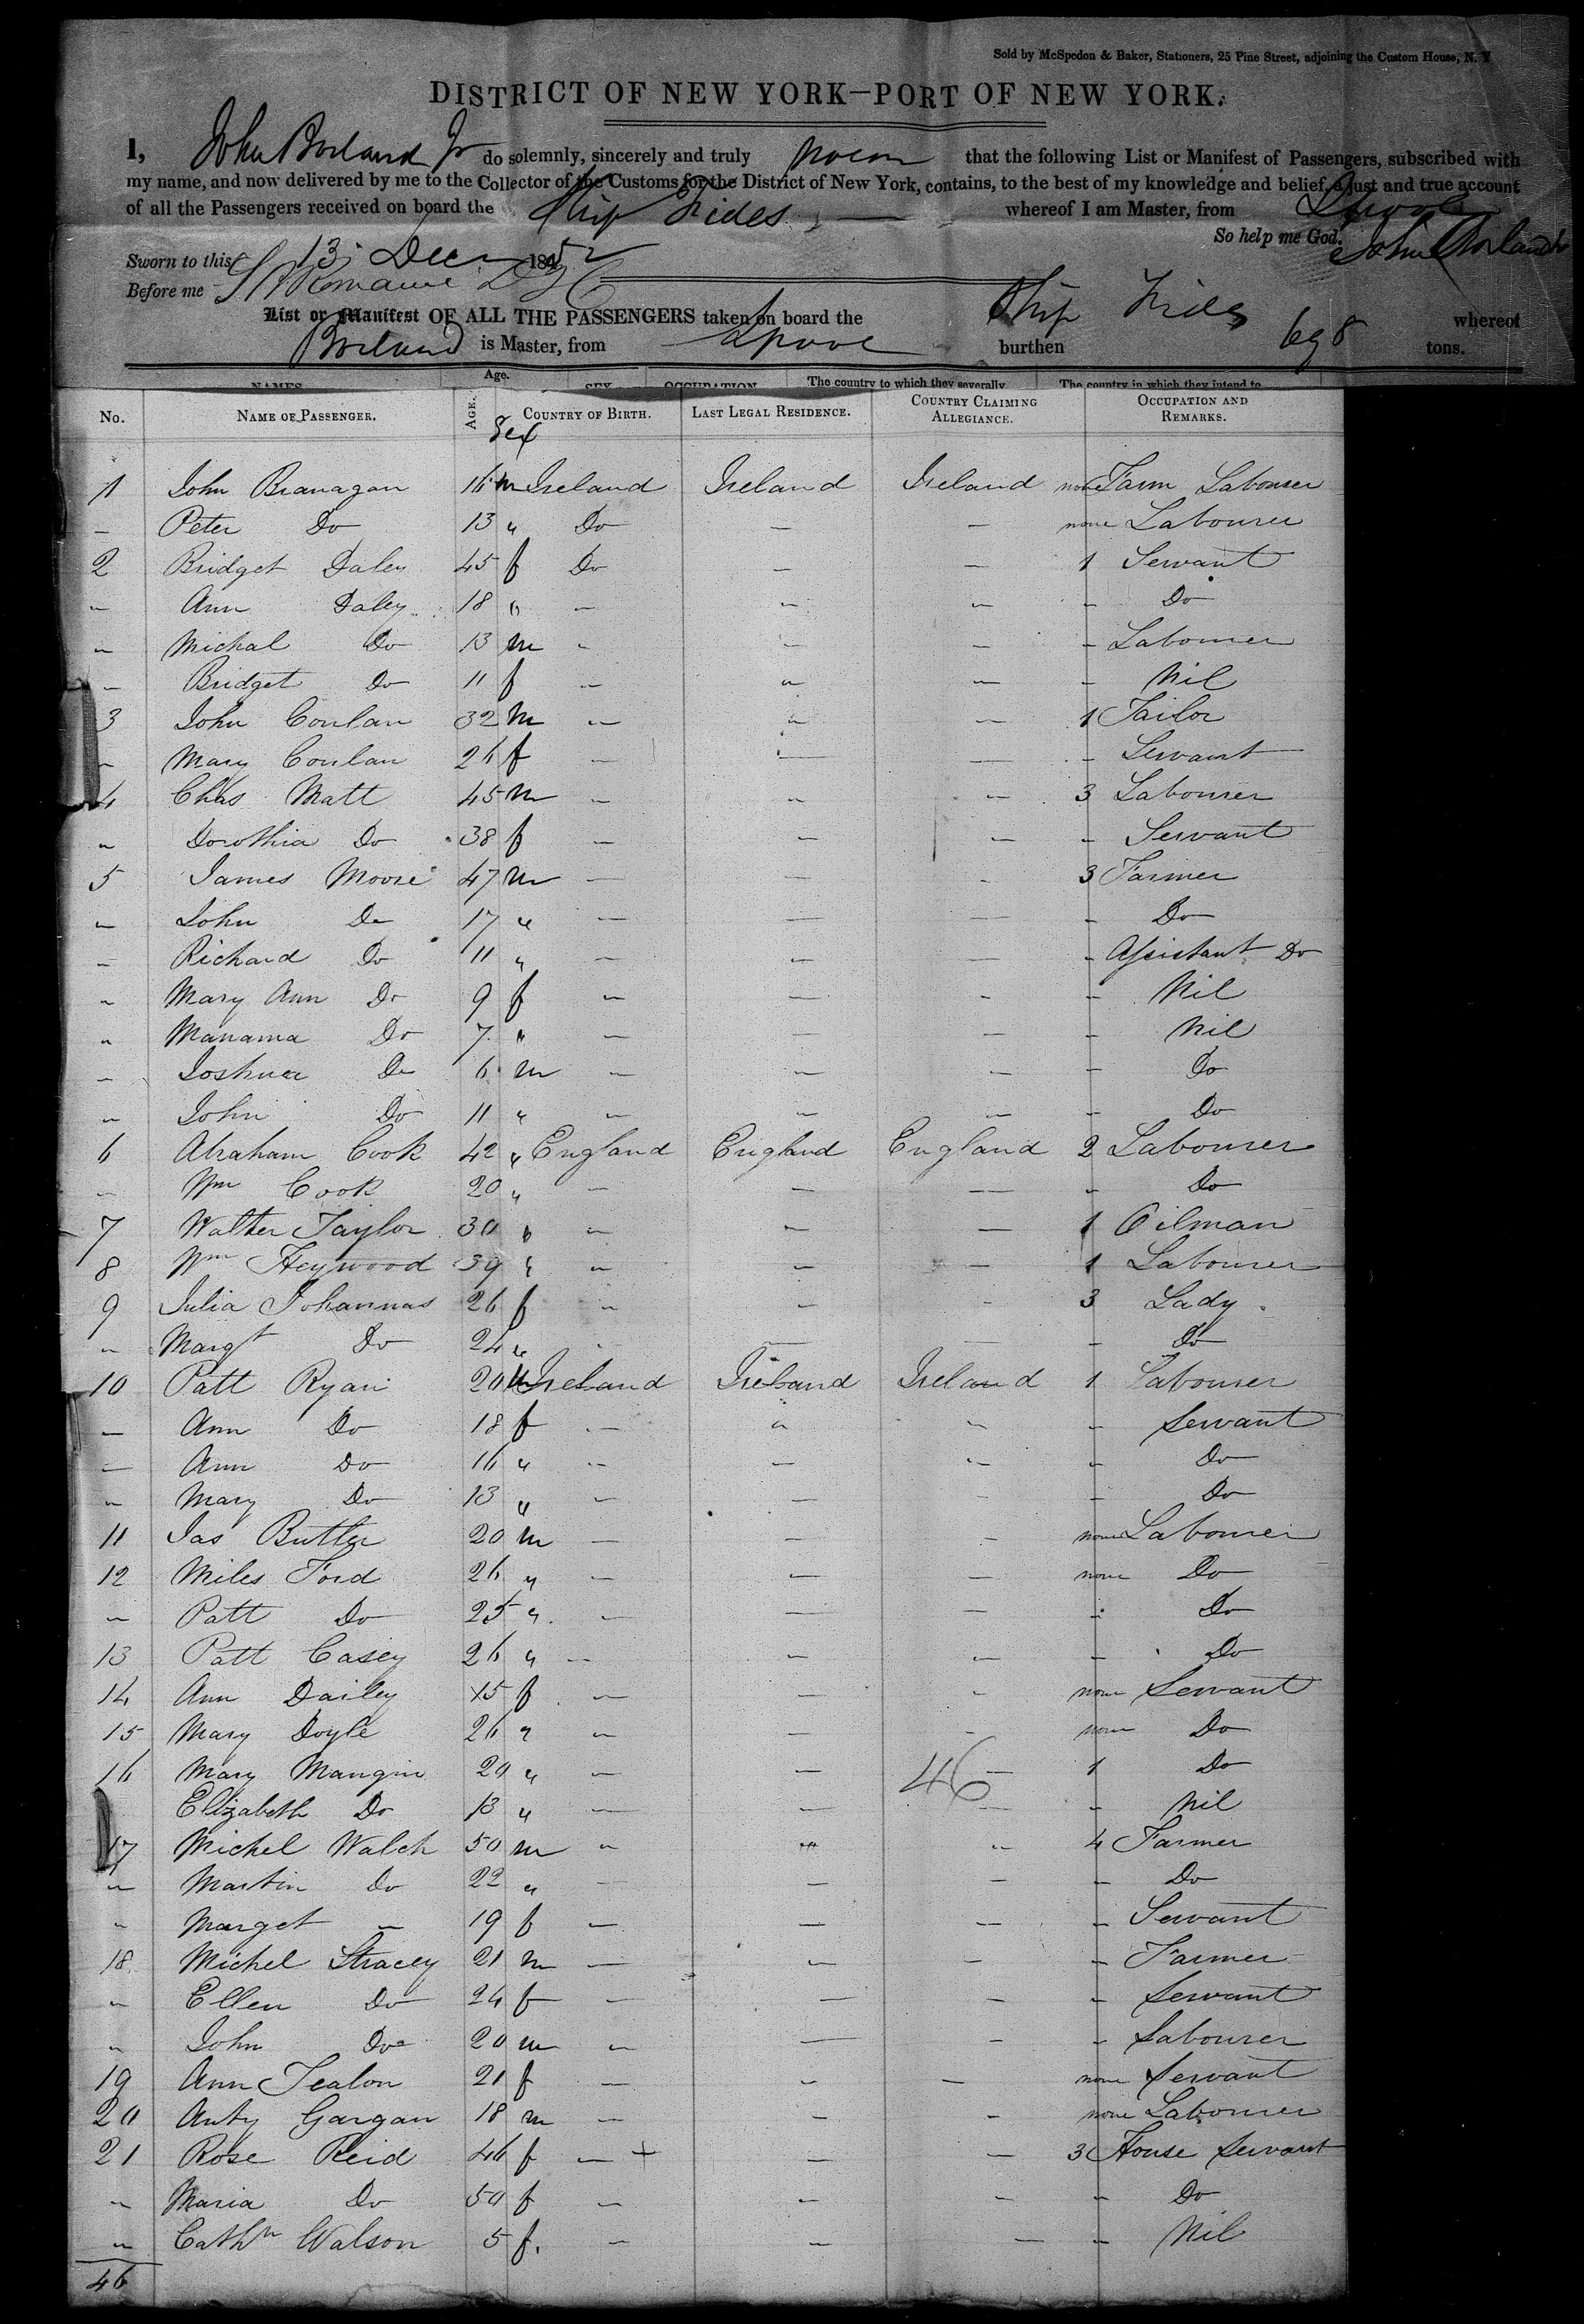 Sold by McSpedon & Baker, Stationers, 25 Pine Street, adjoining the Custom House, N. Y
DISTRICT OF NEW YORK—PORT OF NEW YORK.
I, John Borland Jr do solemnly, sincerely and truly that the following List or Manifest of Passengers, subscribed with
my name, and now delivered by me to the Collector of the Customs for the District of New York, contains, to the best of my knowledge and belief, a just and true account
of all the Passengers received on board the Ship whereof I am Master, from Lpool
So help me God. John Borland Jr
Sworn to this 13 Dec 1852
Before me
List or Manifest OF ALL THE PASSENGERS taken on board the Ship whereof
Borland is Master, from Lpool burthen 698 tons.
NAMES Age. SEX OCCUPATION The country to which they severally The country in which they intend to
No. NAME OF PASSENGER. AGE. Sex COUNTRY OF BIRTH. LAST LEGAL RESIDENCE. COUNTRY CLAIMING ALLEGIANCE. OCCUPATION AND REMARKS.
1 John Branagan 16 m Ireland Ireland Ireland none Farm Labourer
— Peter Do 13 " Do — — none Labourer
2 Bridget Daley 45 f Do — — 1 Servant
" Ann Daley 18 " — " — - Do
" Michal Do 13 m - — — - Labourer
— Bridget Do 11 f — " — - Nil
3 John Conlan 32 m — " — 1 Tailor
" Mary Conlan 26 f — — — - Servant
4 Chas Matt 45 m — " — 3 Labourer
" Dorothia Do 38 f — — — - Servant
5 James Moore 47 m — — - 3 Farmer
— John Do 17 " — — — - Do
— Richard Do 11 " — — — - Assistant Do
" Mary Ann Do 9 f — — - - Nil
" Manama Do 7 " — — — - Nil
— Joshua Do 6 m — — — - Do
— John Do 11 " — — — - Do
6 Abraham Cook 42 " England England England 2 Labourer
— Wm Cook 20 " — — — - Do
7 Walter Taylor 30 " — — — 1 Oilman
8 Wm Heywood 39 " — — — 1 Labourer
9 Julia Johannas 26 f — — - 3 Lady
" Margt Do 24 " - — — - Do
10 Patt Ryan 20 m Ireland Ireland Ireland 1 Labourer
— Ann Do 18 f — " — - Servant
— Ann Do 16 " — — — - Do
" Mary Do 13 " — — - - Do
11 Jas Butler 20 m — — - none Labourer
12 Miles Ford 26 " — — — none Do
— Patt Do 25 " — — — - Do
13 Patt Casey 26 " — — — - Do
14 Ann Dailey 45 f — — - none Servant
15 Mary Doyle 26 " — — - none Do
16 Mary Mangin 20 " — — — 1 Do
46
Elizabeth Do 13 " — — — - Nil
17 Michel Walch 50 m — " — 4 Farmer
— Martin Do 22 " — — — - Do
" Marget — 19 f — — — - Servant
18 Michel Stracey 21 m — — — - Farmer
" Ellen Do 24 f — — — - Servant
" John Do 20 m — — - - Labourer
19 Ann Tealon 21 f — — — none Servant
20 Anty Gargan 18 m — — - none Labourer
21 Rose Reid 46 f — + — — 3 House Servant
" Maria Do 50 f — — — - Do
" Cathn Walson 5 f. — — — - Nil
46